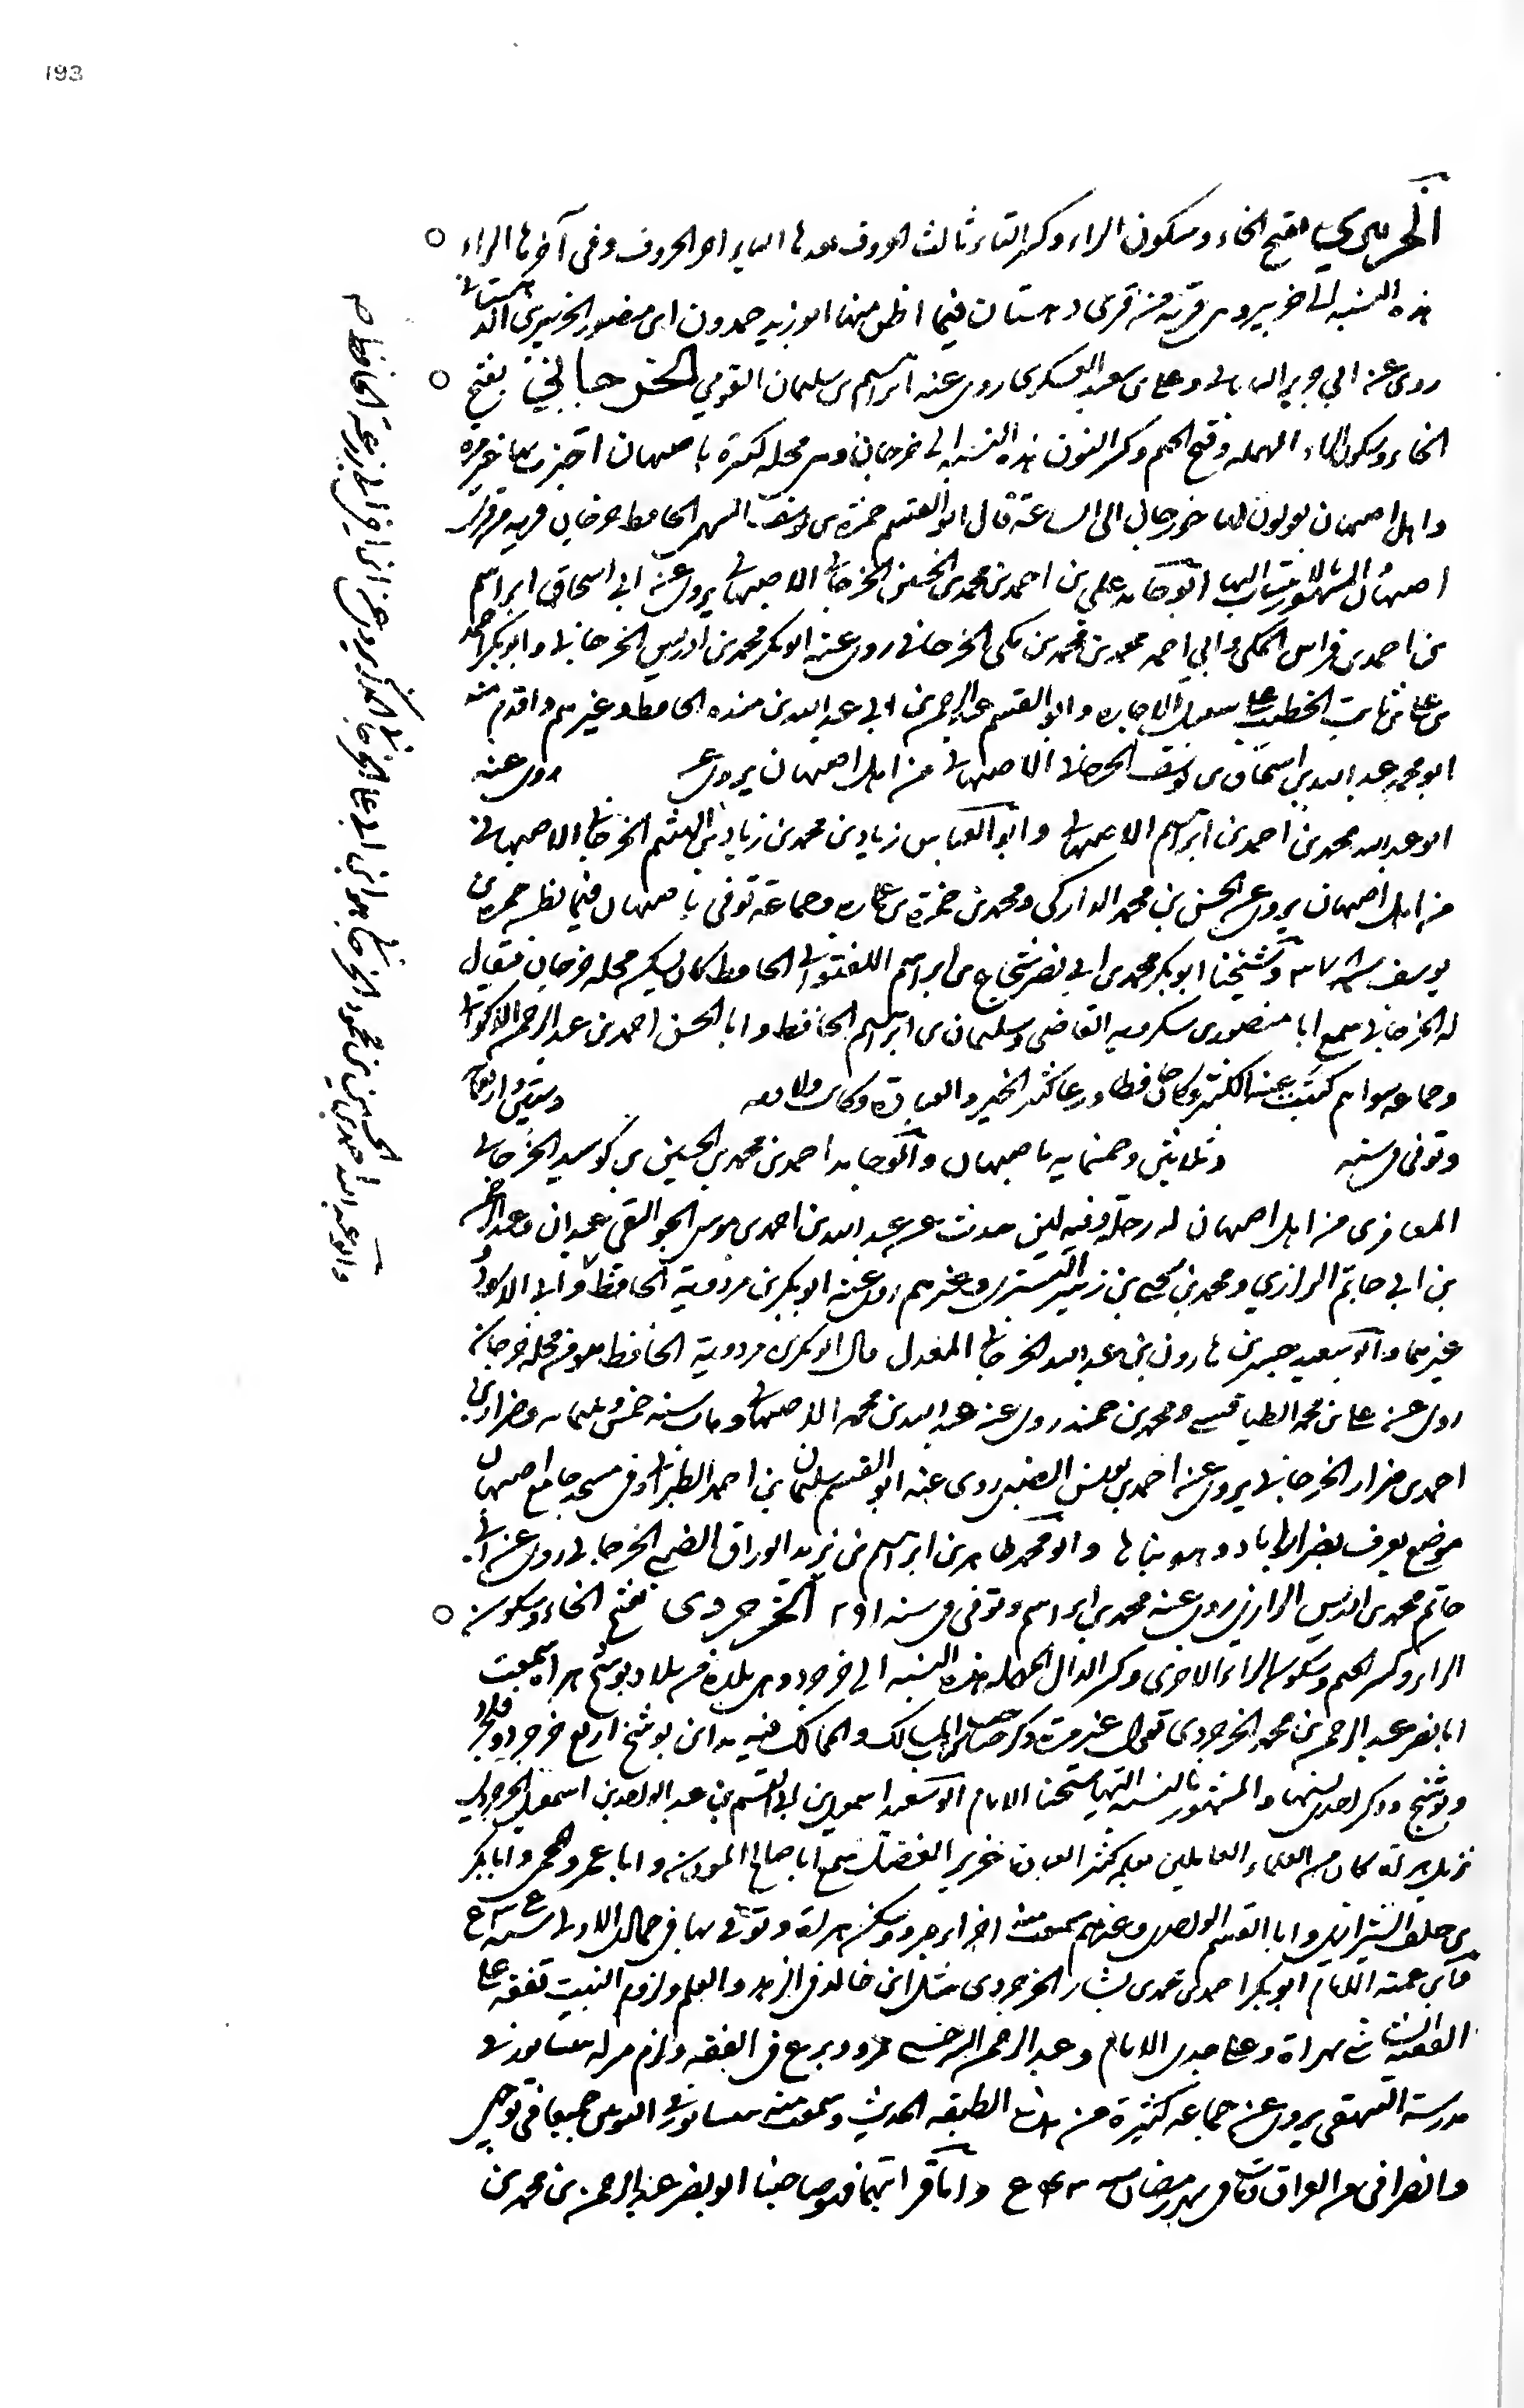 193
الخرتيري بفتح الخاء وسكون الراء وكسر التاء ثالث الحروف بعدها الياء آخر الحروف وفي آخرها الراء
هذه النسبة الى خرتير وهي قرية من قرى دهستان فيما اظن منها ابو زيد حمدون بن منصور الخرتيري الدهستاني
روى عن ابي جرير وعلي بن سعيد العسكري روى عنه ابراهيم بن سليمان القومسي الخرجاني بفتح
الخاء وسكون الراء المهملة وفتح الجيم وكسر النون هذه النسبة الى خرجان وهي محلة كبيرة باصبهان اجتزت بها غير مرة
واهل اصبهان يقولون لها خورجان الى الساعة قال ابو القسم حمزة بن يوسف السهمي الحافظ خرجان قرية من قرى
اصبهان المشهور بالانتساب اليها ابو حامد علي بن احمد بن محمد بن الحسين الخرجاني الاصبهاني يروي عن ابي اسحاق ابراهيم
بن احمد بن فراس المكي وابي احمد محمد بن محمد بن مكي الجرجاني روى عنه ابو بكر محمد بن ادريس الجرجرائي وابو بكر احمد
بن علي بن ثابت الخطيب على سبيل الاجازة وابو القسم عبد الرحمن بن ابي عبد الله بن منده الحافظ وغيرهم واقدم منه
ابو محمد عبد الله بن اسحاق بن يوسف الخرجاني الاصبهاني من اهل اصبهان يروي عن روى عنه
ابو عبد الله محمد بن احمد بن ابراهيم الاصبهاني وابو العباس زياد بن محمد بن زياد بن الهيثم الخرجاني الاصبهاني
من اهل اصبهان يروي عن الحسن بن محمد الداركي ومحمد بن حمزة بن عمارة وجماعة توفي باصبهان فيما يظنه حمزة بن
يوسف سنة ٣٧٨ وشيخنا ابو بكر محمد بن ابي نصر شجاع بن ابراهيم اللفتواني الحافظ كان يسكن محلة خرجان فيقال
له الخرجاني سمع ابا منصور بن شكرويه القاضي وسليمان بن ابراهيم الحافظ وابا الحسن احمد بن عبد الرحمن الذكواني
وجماعة سواهم كتبت عنه الكثير وكان حافظا ورعا كثير الخير والعبادة وكانت ولادته وستين واربعمائة
وتوفي في سنة وثلاثين وخمسمائة باصبهان وابو حامد احمد بن محمد بن الحسين بن كوسيد الخرجاني
المعافري من اهل اصبهان له رحلة وفيه لين حدث عن عبد الله بن احمد بن موسى الجواليقي عبدان وعبد الرحمن
بن ابي حاتم الرازي ومحمد بن يحيى بن زهير التستري وغيرهم روى عنه ابو بكر بن مردويه الحافظ وابي
غيرهما وابو سعيد بن هارون بن عبد الله الخرجاني المعدل قال ابو بكر بن مردويه الحافظ هو من محلة خرجان
روى عن علي بن محمد الطنافسي ومحمد بن حميد روى عنه عبد الله بن محمد الاصبهاني ومات سنة خمس وثلثمائة وضرار بن
احمد بن ضرار الخرجاني يروي عن احمد بن يونس الضبي روى عنه ابو القسم سليمان بن احمد الطبراني وفي مسجد جامع اصبهان
موضع يعرف بضراراباد وهو بناها وابو محمد طاهر بن ابراهيم بن يزيد الوراق الضبي الخرجاني روى عن ابي
حاتم محمد بن ادريس الرازي روى عنه محمد بن ابراهيم وتوفي في سنة الخرجردي بفتح الخاء وسكون
الراء وكسر الجيم وسكون الراء الاخرى وكسر الدال المهملة هذه النسبة الى خرجرد وهي بلدة من بلاد بوشنج هراة سمعت
ابا نصر عبد الرحمن بن محمد الخرجردي يقول غير مرة ذكر صاحب المسالك والممالك فيه مدائن بوشنج اربع خرجرد وفرجرد
وبوشنج وذكر احدى سنها والمشهور بالنسبة اليها شيخنا الامام ابو سعيد اسمعيل بن ابي القسم بن عبد الواحد بن اسمعيل الخرجردي
نزيل هراة كان من العلماء العاملين بعلمه كثير العبادة غزير الفضل سمع ابا صالح المؤذن وابا عمرو المحمي وابا بكر
بن خلف الشيرازي وابا القسم الواحدي وغيرهم سمعت منه اجزاء بمرو وسكن هراة وتوفي بها في جمادى الاولى سنة
وابن عمته الامام ابو بكر احمد بن محمد بن بشار الخرجردي مثل ابن خاله في الزهد والعلم ولزوم البيت تفقه على
الفقيه الشاشي بهراة وعلى جدي الامام وعبد الرحمن السرخسي بمرو وبرع في الفقه ولزم منزله بنيسابور في
مدرسة البيهقي يروي عن جماعة كثيرة من هذه الطبقة الحديث وسمعت منه بنيسابور في النوبتين جميعا في توجهي
وانصرافي من العراق ومات في شهر رمضان سنة واما قرابتهما فهو صاحبنا ابو نصر عبد الرحمن بن محمد بن
وابو عبد الله محمد بن الحسين بن محمود الخرجاني هو ابن ابي علي الخرجاني الحافظ